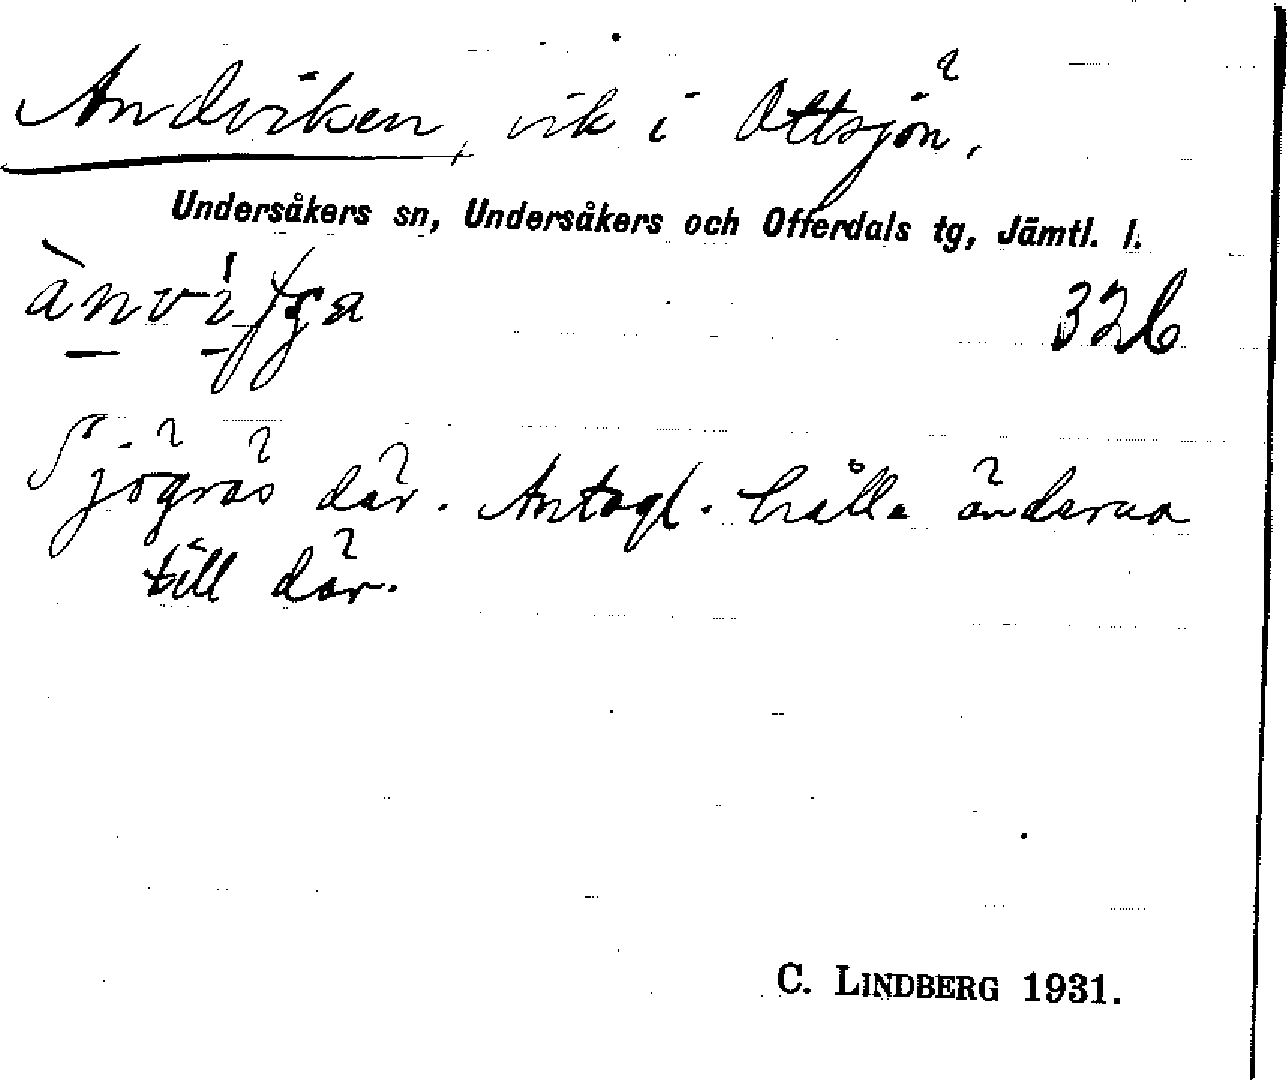 Andviken, vik i Ottsjön.
Undersåkers sn, Undersåkers och Offerdals tg, Jämtl. l.
326
Sjögräs där. Antagl. hålla änderna
till där.
C. LINDBERG 1931.